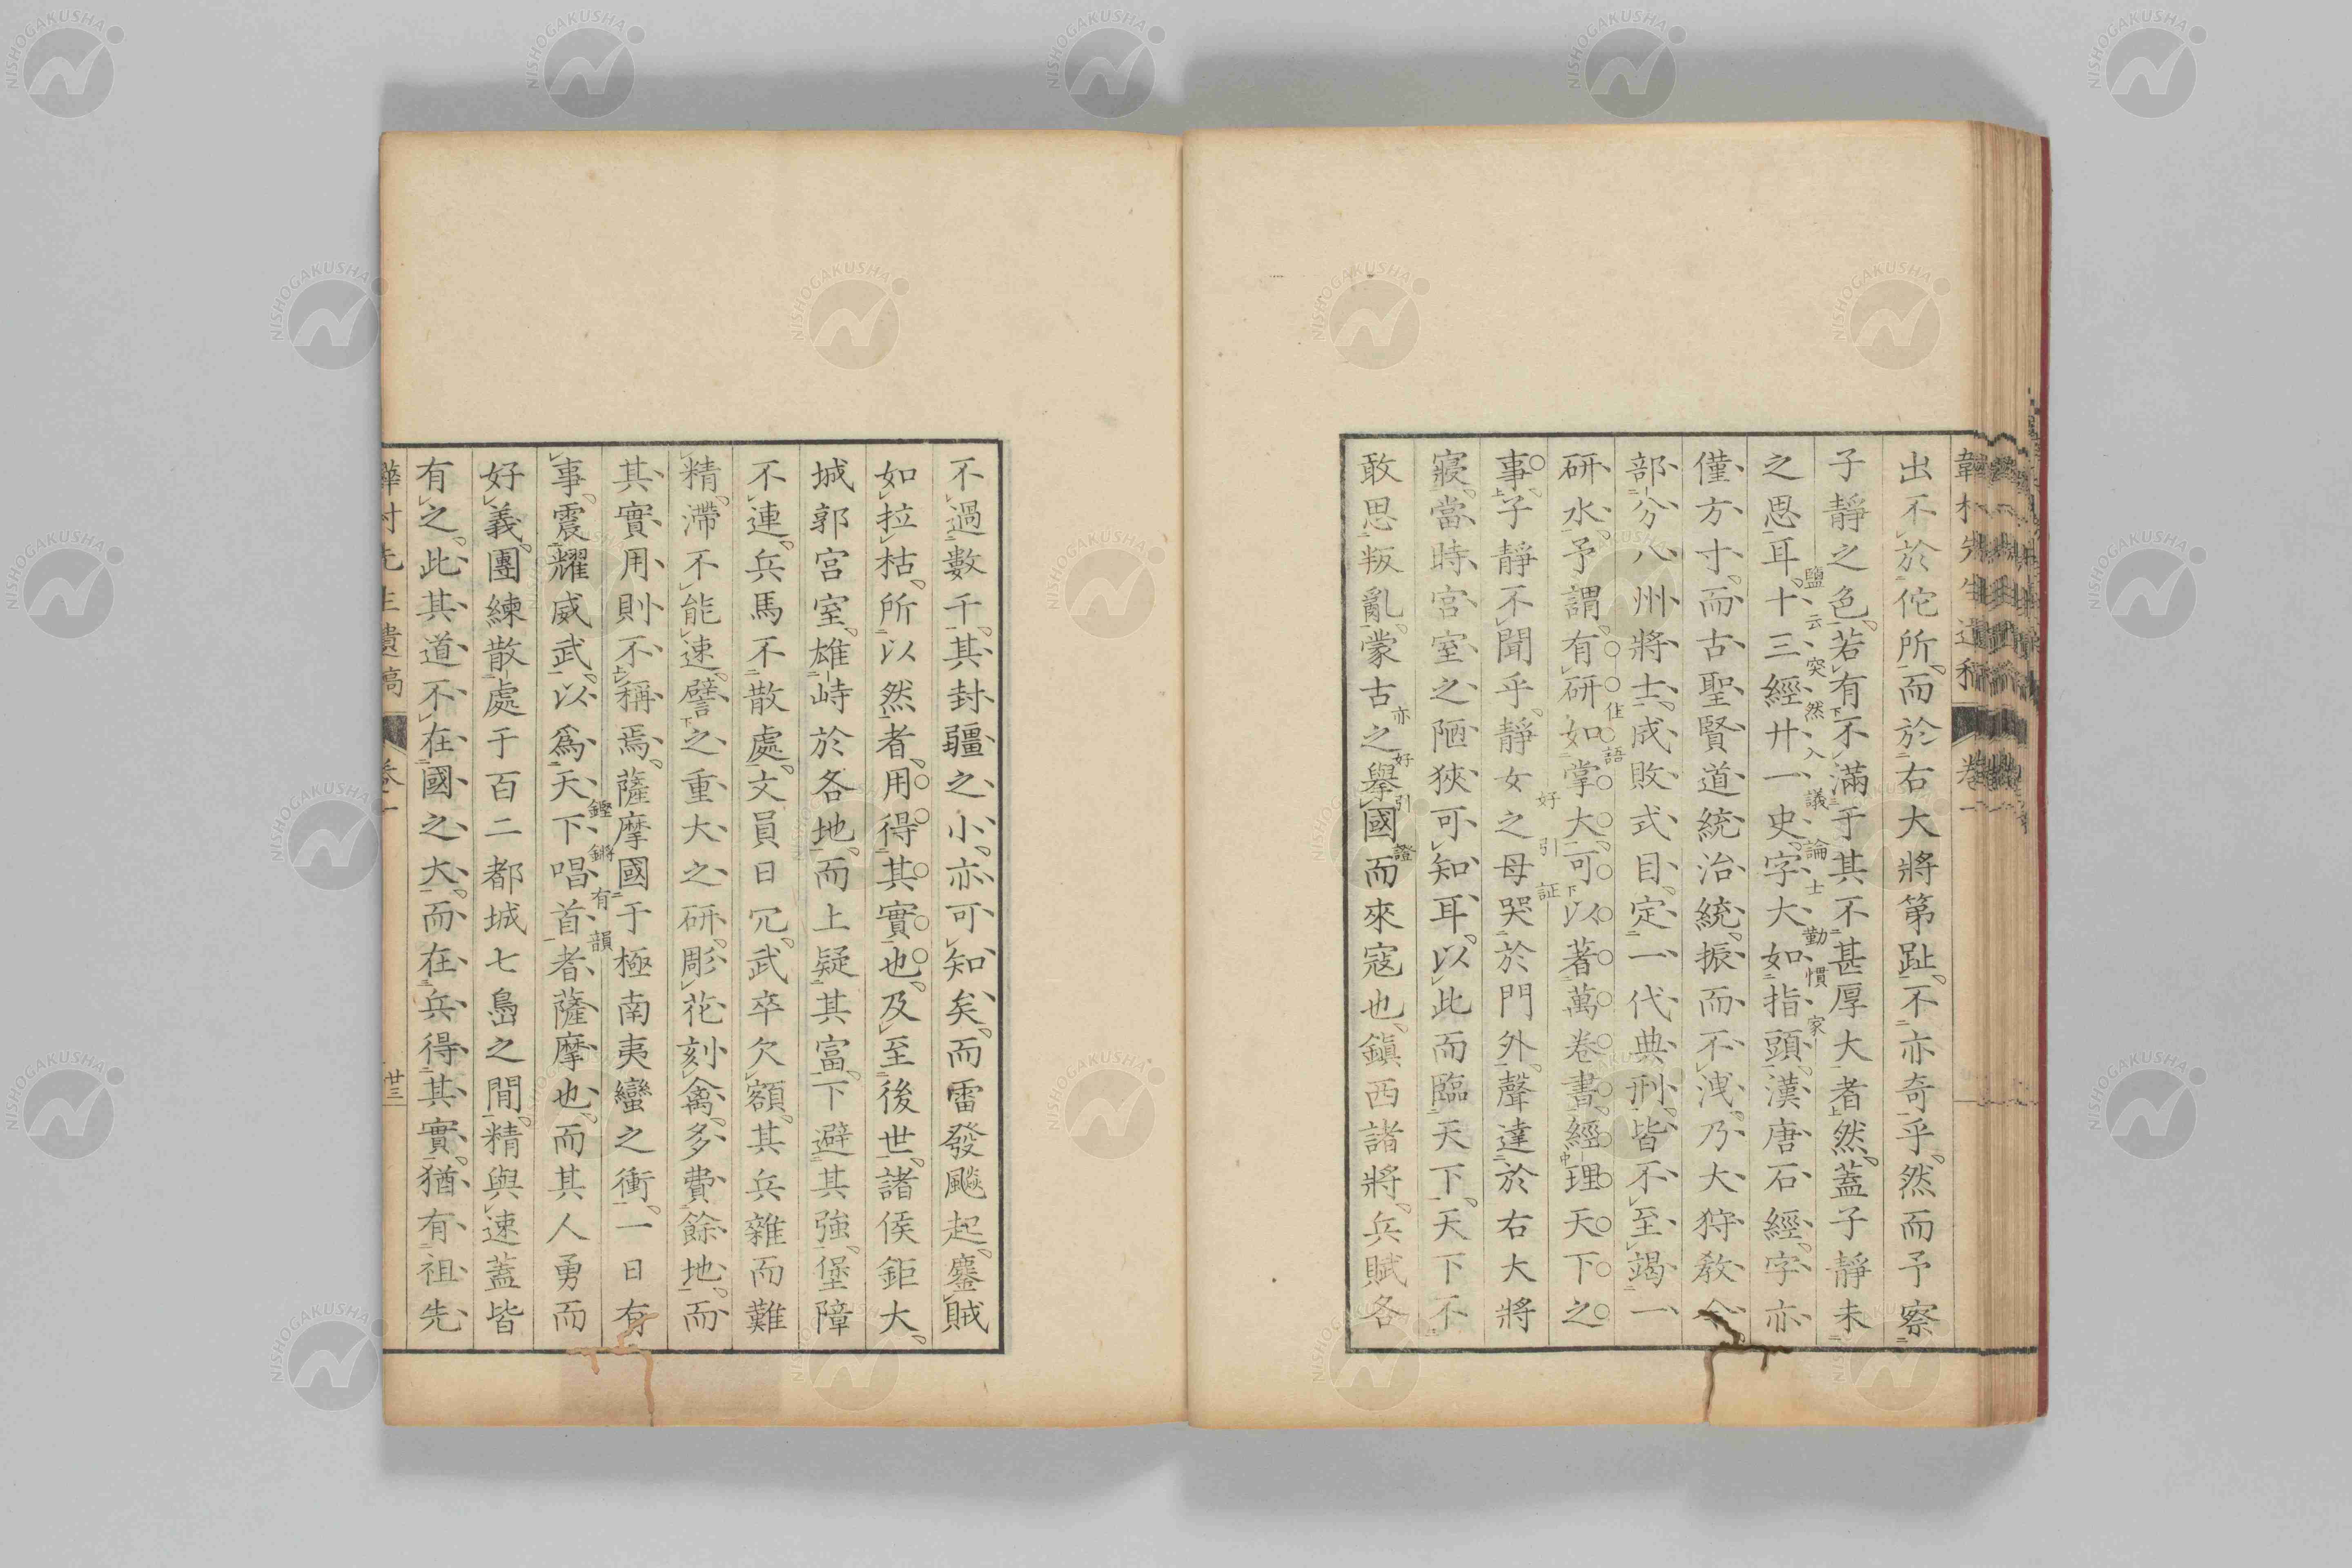 出不於佗所而於右大將第趾不亦奇乎然而予察
子靜之色若有不滿于其不甚厚大者然蓋子靜未
之思耳十三經廿一史字大如指頭漢唐石經字亦
鹽云突然入議論士勤慣家
僅方寸而古聖賢道統治統振而不洩乃大狩教令
部分八州將士成敗式目定一代典刑皆不至竭一
研水予謂有研如掌大可以著萬卷書經理天下之
佳語
事子靜不聞乎靜女之母哭於門外聲達於右大將
好引証
寢當時宮室之陋狹可知耳以此而臨天下天下不
敢思叛亂蒙古之擧國而來寇也鎭西諸將兵賦各
亦好引證
不過數千其封疆之小亦可知矣而雷發飈起鏖賊
如拉枯所以然者用得其實也及至後世諸侯鉅大
城郭宮室雄峙於各地而上疑其富下避其強堡障
不連兵馬不散處文員日冗武卒欠額其兵雜而難
精滯不能速譬之重大之研彫花刻禽多費餘地而
其實用則不稱焉薩摩國于極南夷蠻之衝一日有
事震耀威武以爲天下唱首者薩摩也而其人勇而
鏗鏘有韻
好義團練散處于百二都城七島之間精與速蓋皆
有之此其道不在國之大而在兵得其實猶有祖先
卷一
廿三
NISHOGAKUSHA